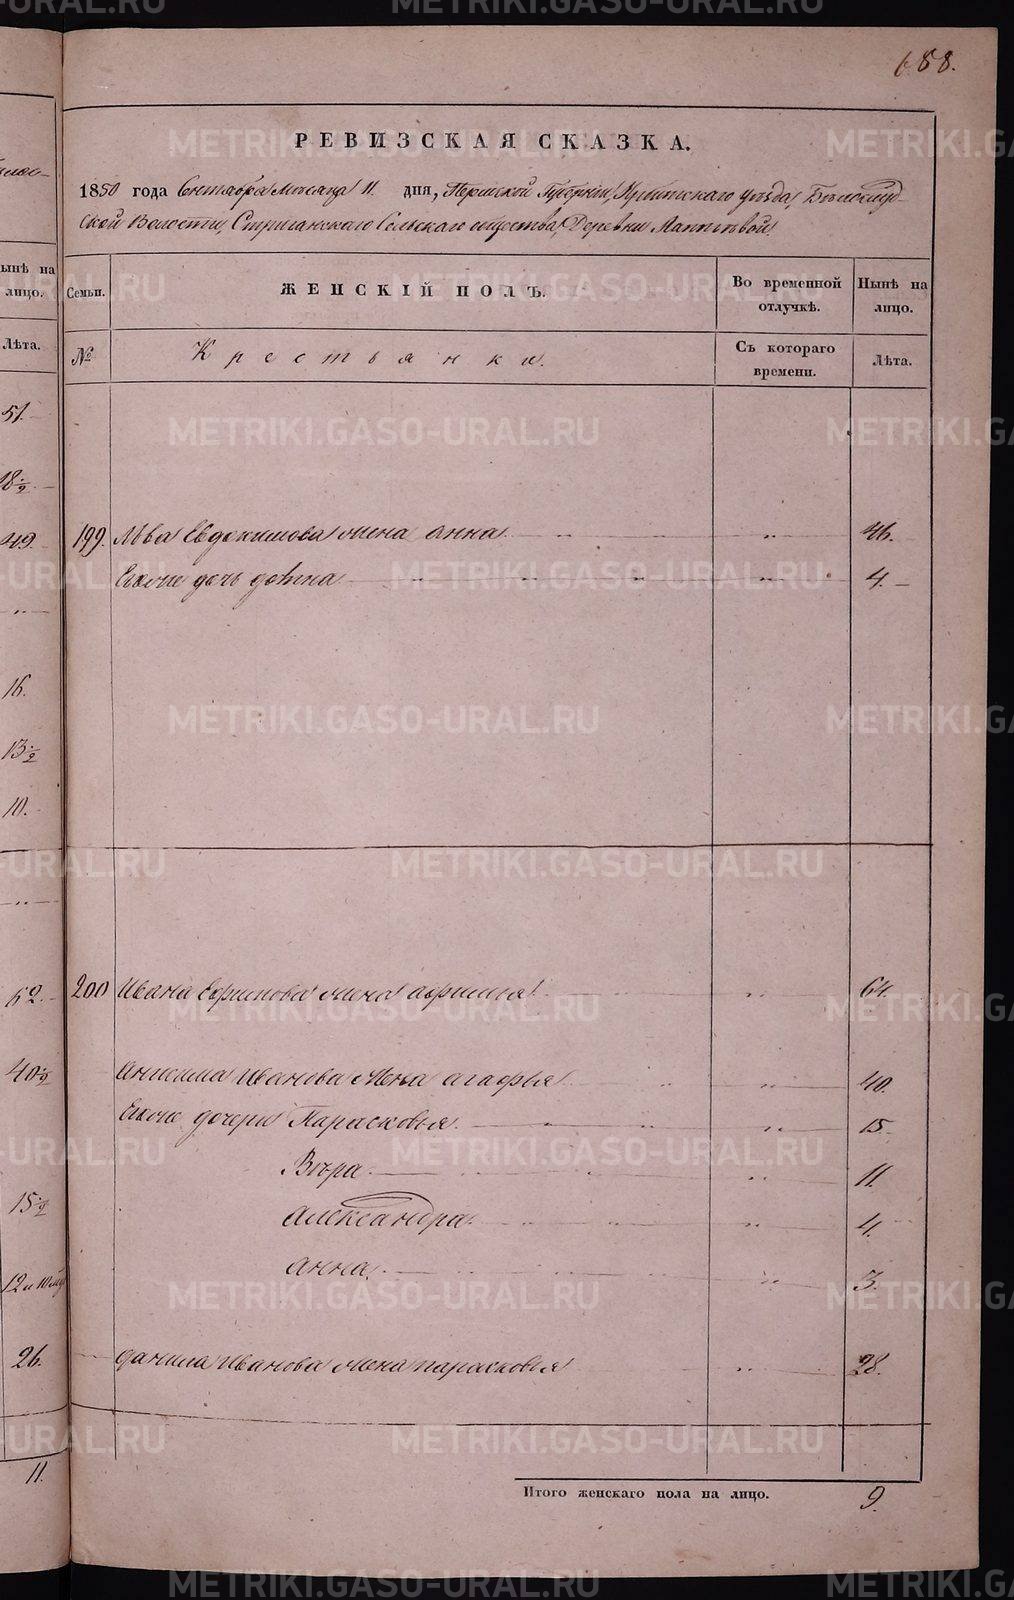 688.
РЕВИЗСКАЯ СКАЗКА.
1850 года Сентября Месяца 11 дня, Пермской Губернии, Ирбитскаго уѣзда, Бѣлослуд-
ской Волости, Стриганскаго Сельскаго общества, Деревни Лаптевой.
Семьи. ЖЕНСКІЙ ПОЛЪ. Во временной отлучкѣ. Нынѣ на лицо.
№ Крестьянки. Съ котораго времени. Лѣта.
199. Льва Евдокимова жена Анна 46.
Ихъ дочь 4.
200 Ивана жена 64.
Анисима Иванова Жена Агафья 40.
дочери Парасковья 15.
Вѣра 11.
Александра 4.
Анна 3.
Данила Иванова жена Парасковья 28.
Итого женскаго пола на лицо. 9.
ынѣ на
лицо.
Лѣта.
51.
18½
49.
16.
13½
10.
62.
40½
15½
12 и 10
26.
11.
METRIKI.GASO-URAL.RU